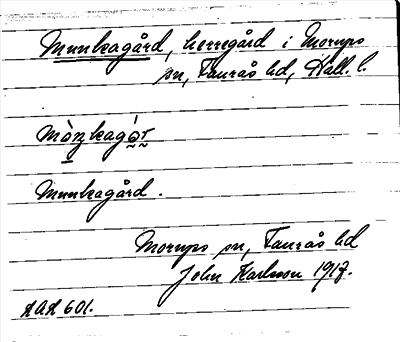 Munkagård, herregård i Morups
sn, Faurås hd, Hall. l.
Munkagård.
Morups sn, Faurås hd
John Karlsson 1917.
AAL 601.